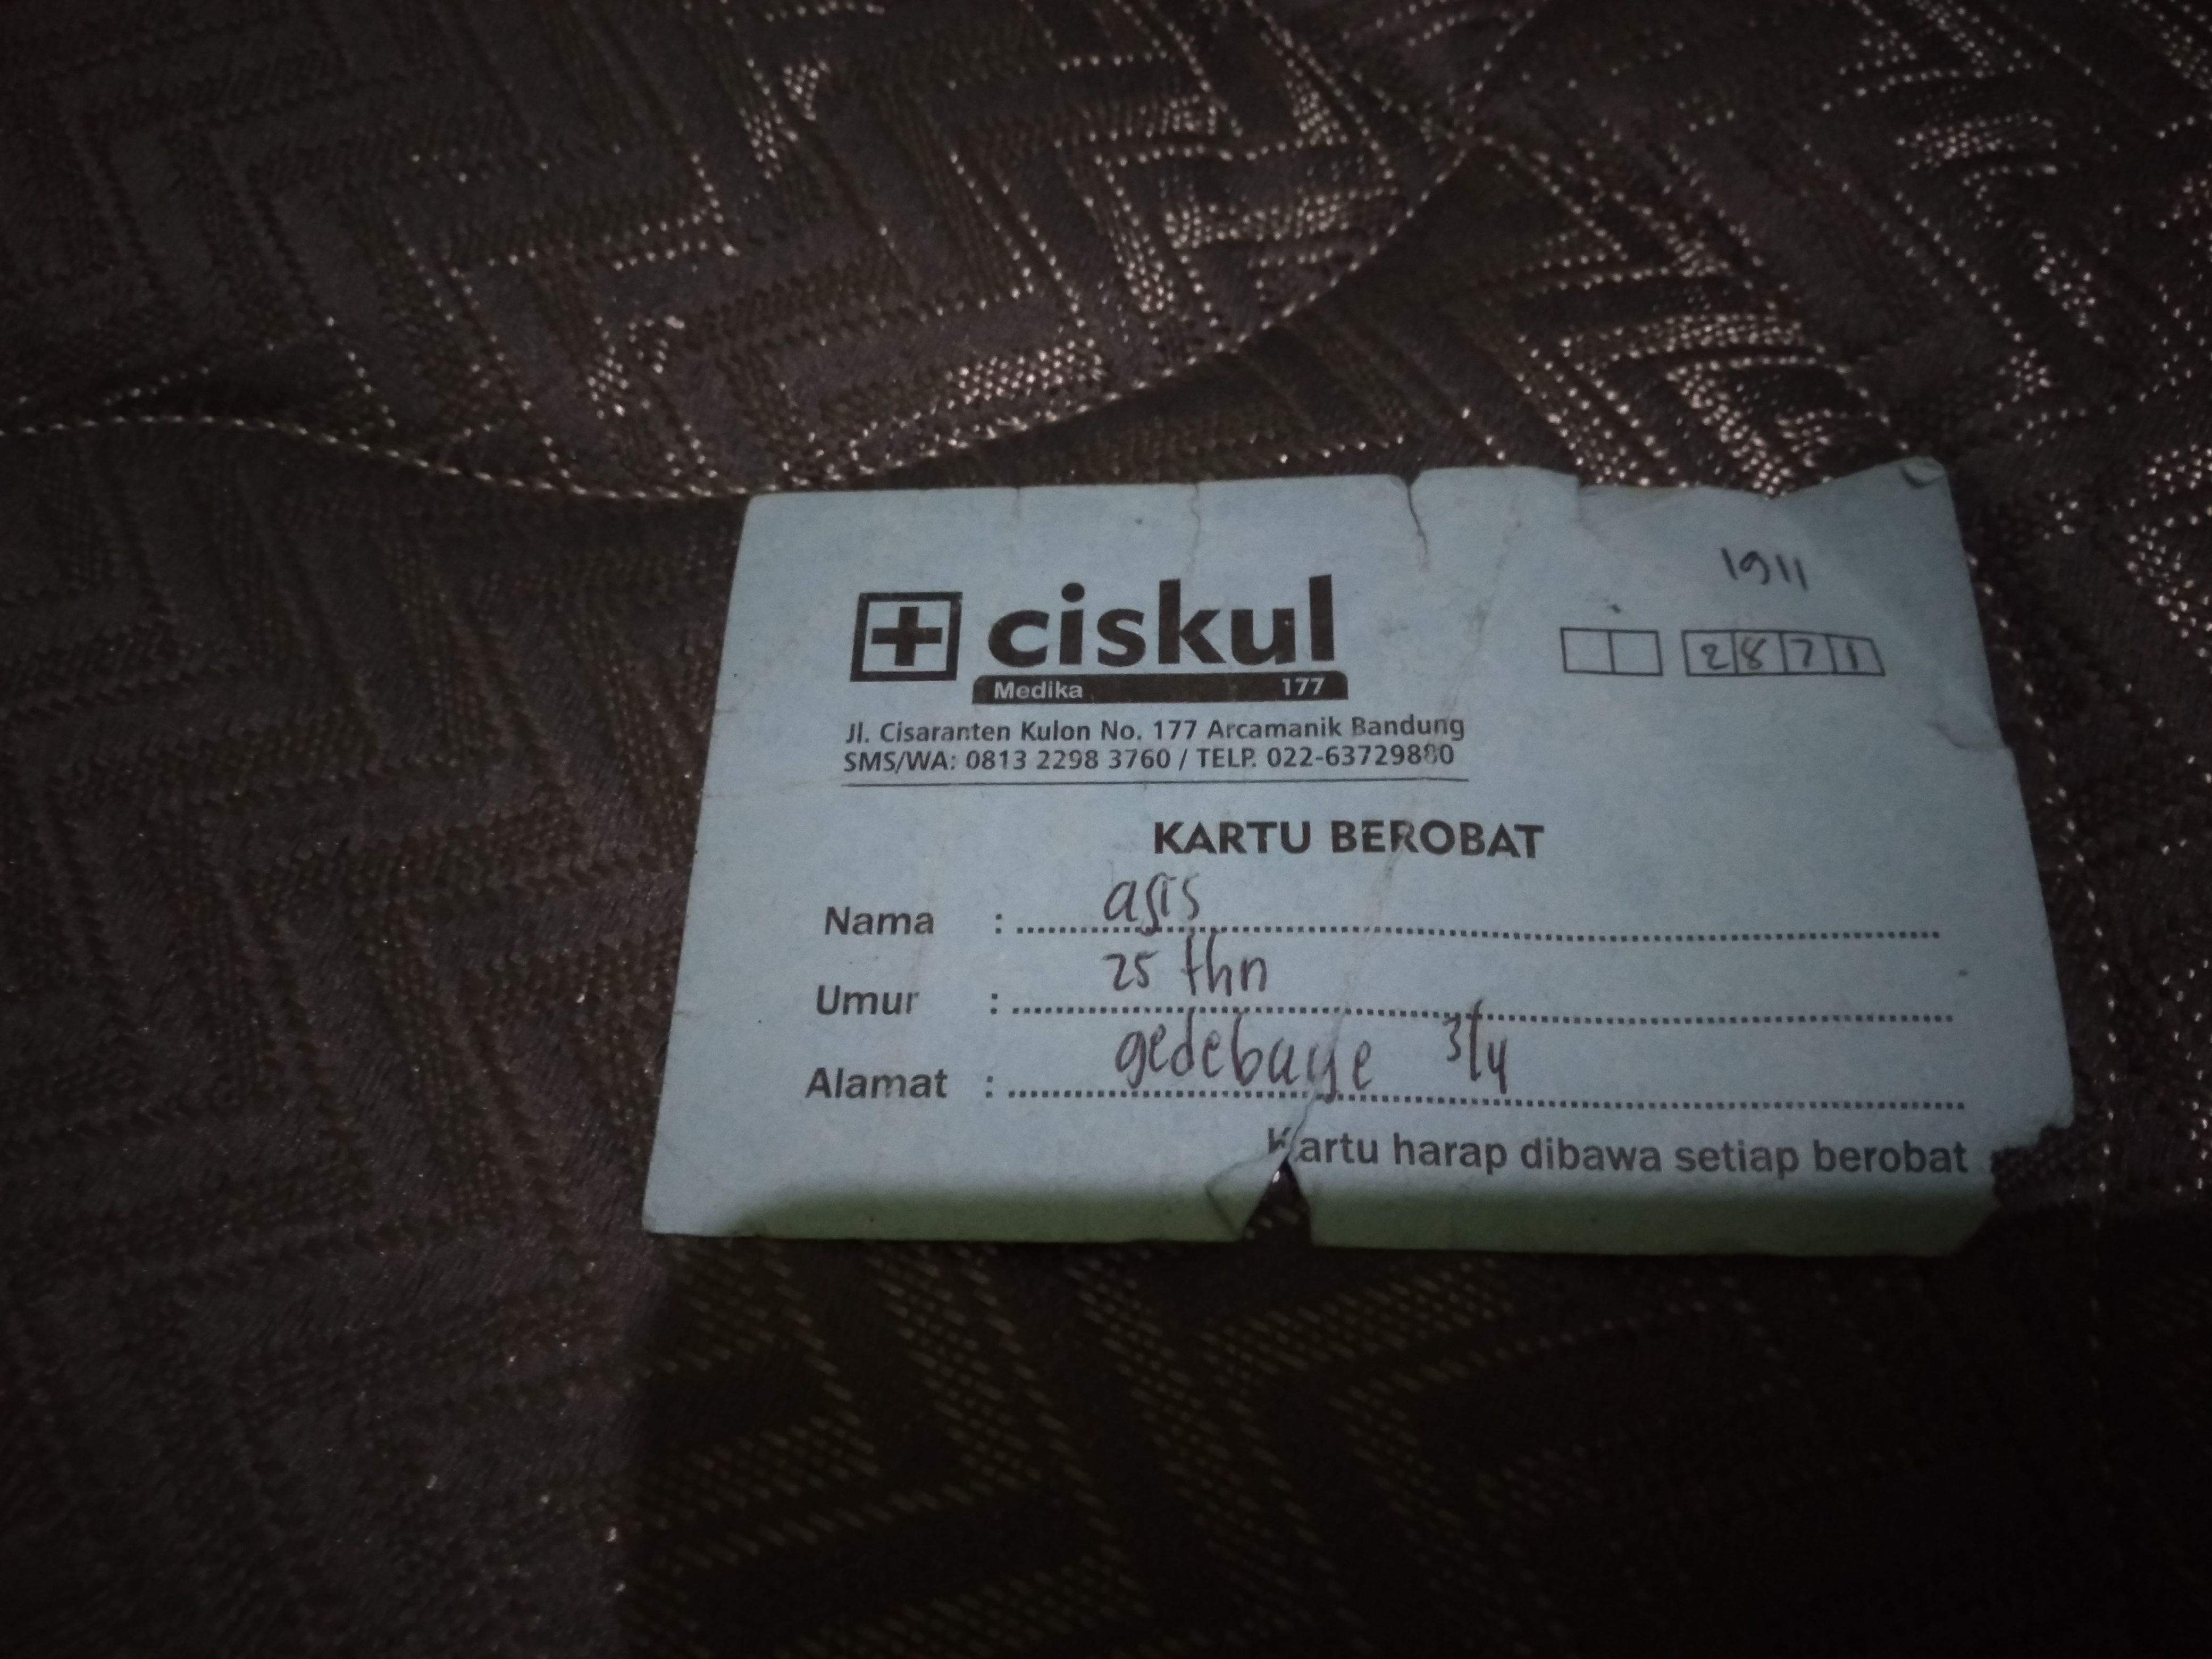 1911
ciskul
Medika 177
2871
Jl. Cisaranten Kulon No. 177 Arcamanik Bandung
SMS/WA: 0813 2298 3760 / TELP. 022-63729880
KARTU BEROBAT
Nama : agis
Umur : 25 thn
Alamat : gedebage 3/4
Kartu harap dibawa setiap berobat